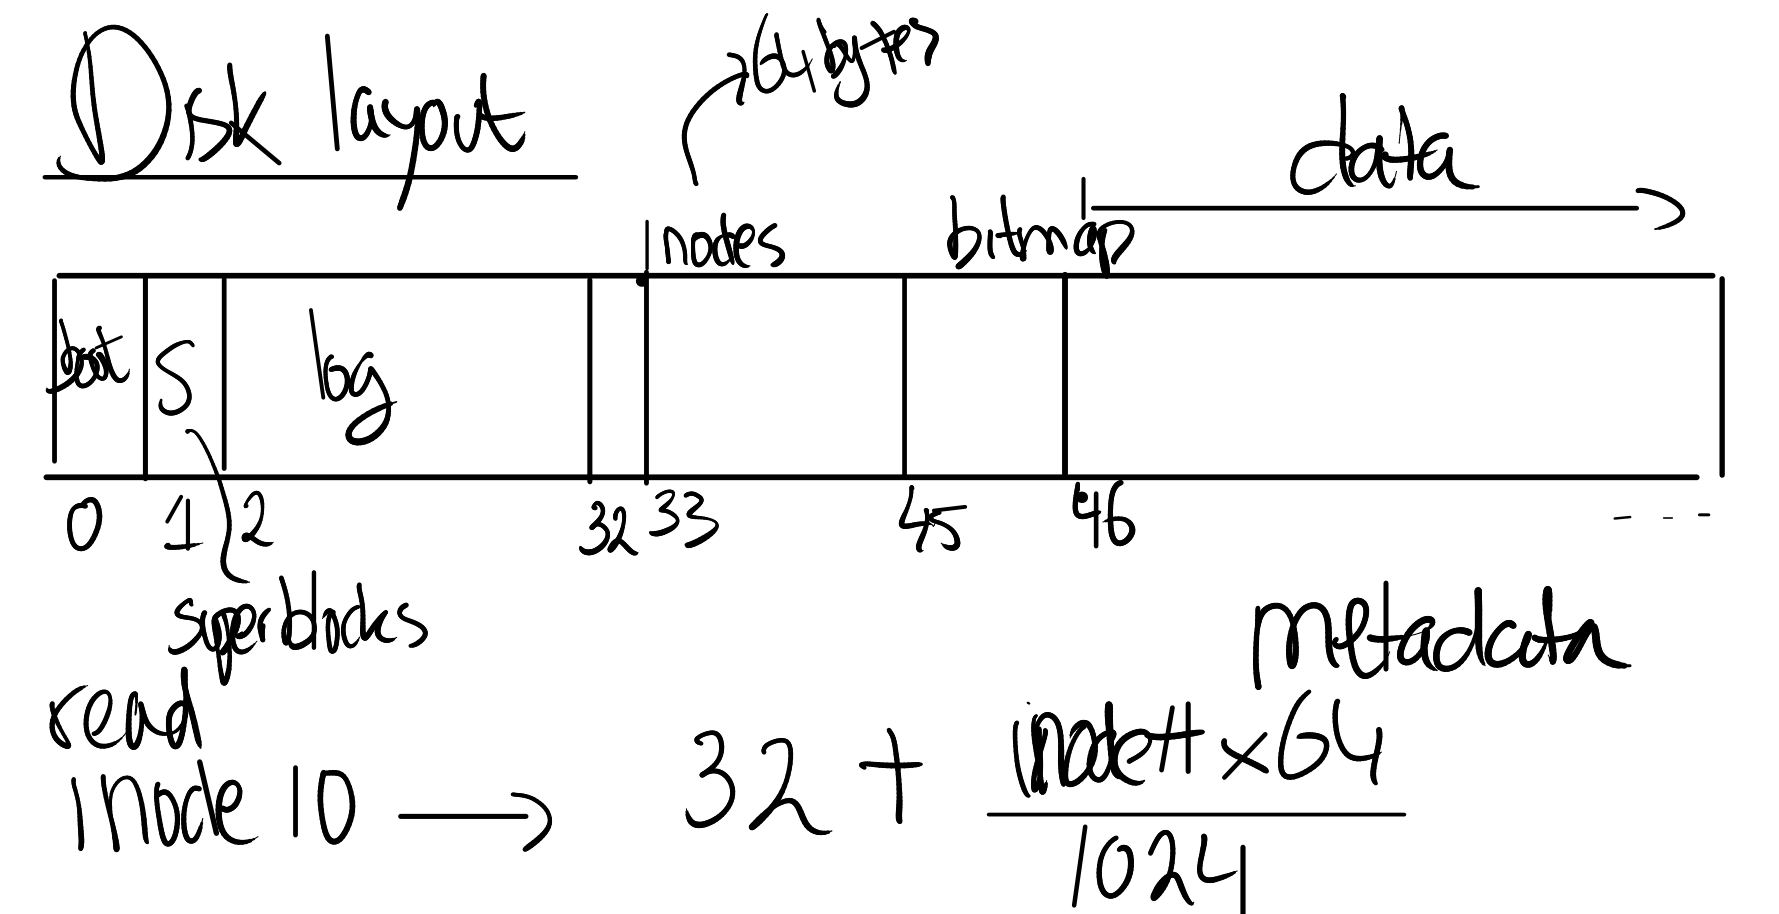 Disk layout
64 bytes
data
inodes
bitmap
boot
S
log
0
1
2
32
33
45
46
- - -
superblocks
metadata
read
inode 10 → 32 + inode# x 64
1024